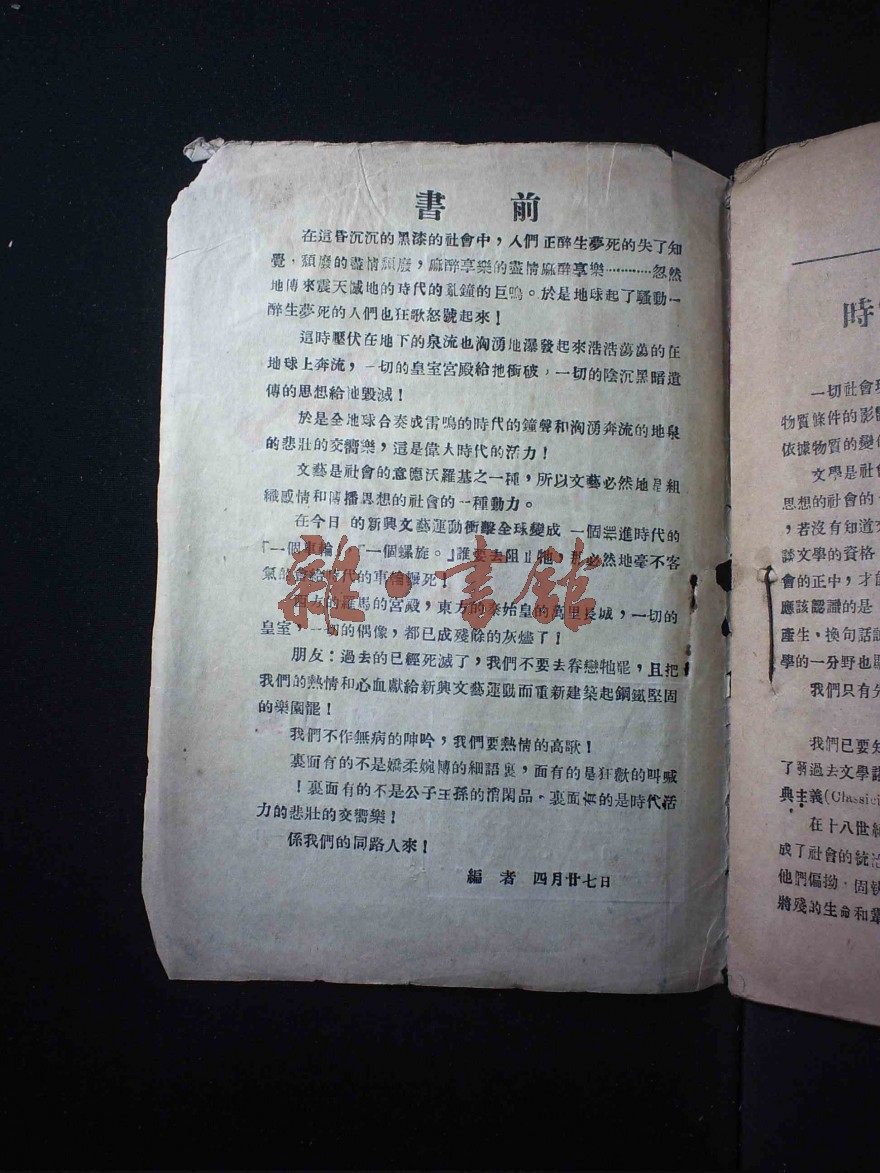 書 前
在這昏沉沉的黑漆的社會中，人們正醉生夢死的失了知
覺，頹廢的盡情頹廢，麻醉享樂的盡情麻醉享樂…………忽然
地傳來震天憾地的時代的亂鐘的巨鳴。於是地球起了騷動一
醉生夢死的人們也狂歌怒號起來！
這時壓伏在地下的泉流也洶湧地瀑發起來浩浩蕩蕩的在
地球上奔流，一切的皇室宮殿給牠衝破，一切的陰沉黑暗遺
傳的思想給牠毀滅！
於是全地球合奏成雷鳴的時代的鐘聲和洶湧奔流的地泉
的悲壯的交嚮樂，這是偉大時代的活力！
文藝是社會的意應沃羅基之一種，所以文藝必然地是組
織感情和傳播思想的社會的一種動力。
在今日 的新興文藝運動衝擊全球變成 一個 進時代的
『一個車輪』『一個螺旋。』誰要去阻止牠，那必然地毫不客
氣的會給時代的車輪輾死！
西方的羅馬的宮殿，東方的秦始皇的萬里長城，一切的
皇室，一切的偶像，都已成殘餘的灰燼了！
朋友：過去的已經死滅了，我們不要去眷戀牠罷，且把
我們的熱情和心血獻給新興文藝運動而重新建築起鋼鐵堅固
的樂園罷！
我們不作無病的呻吟，我們要熱情的高歌！
裏面有的不是嬌柔婉愽的細語裏，面有的是狂歡的叫喊
！裏面有的不是公子王孫的消閑品，裏面 的是時代活
力的悲壯的交嚮樂！
係我們的同路人來！
編 者 四月廿七日
雜·書館
時
一切社會
物質條件的影
依據物質的變
文學是社會
思想的社會的
，若沒有知道
談文學的資格
會的正中，才
應該認識的是
產生，換句話
學的一分野也
我們只有
我們已要
了 過去文學
典主義(Classici
在十八世
成了社會的統治
他們偏拗，固
將殘的生命和